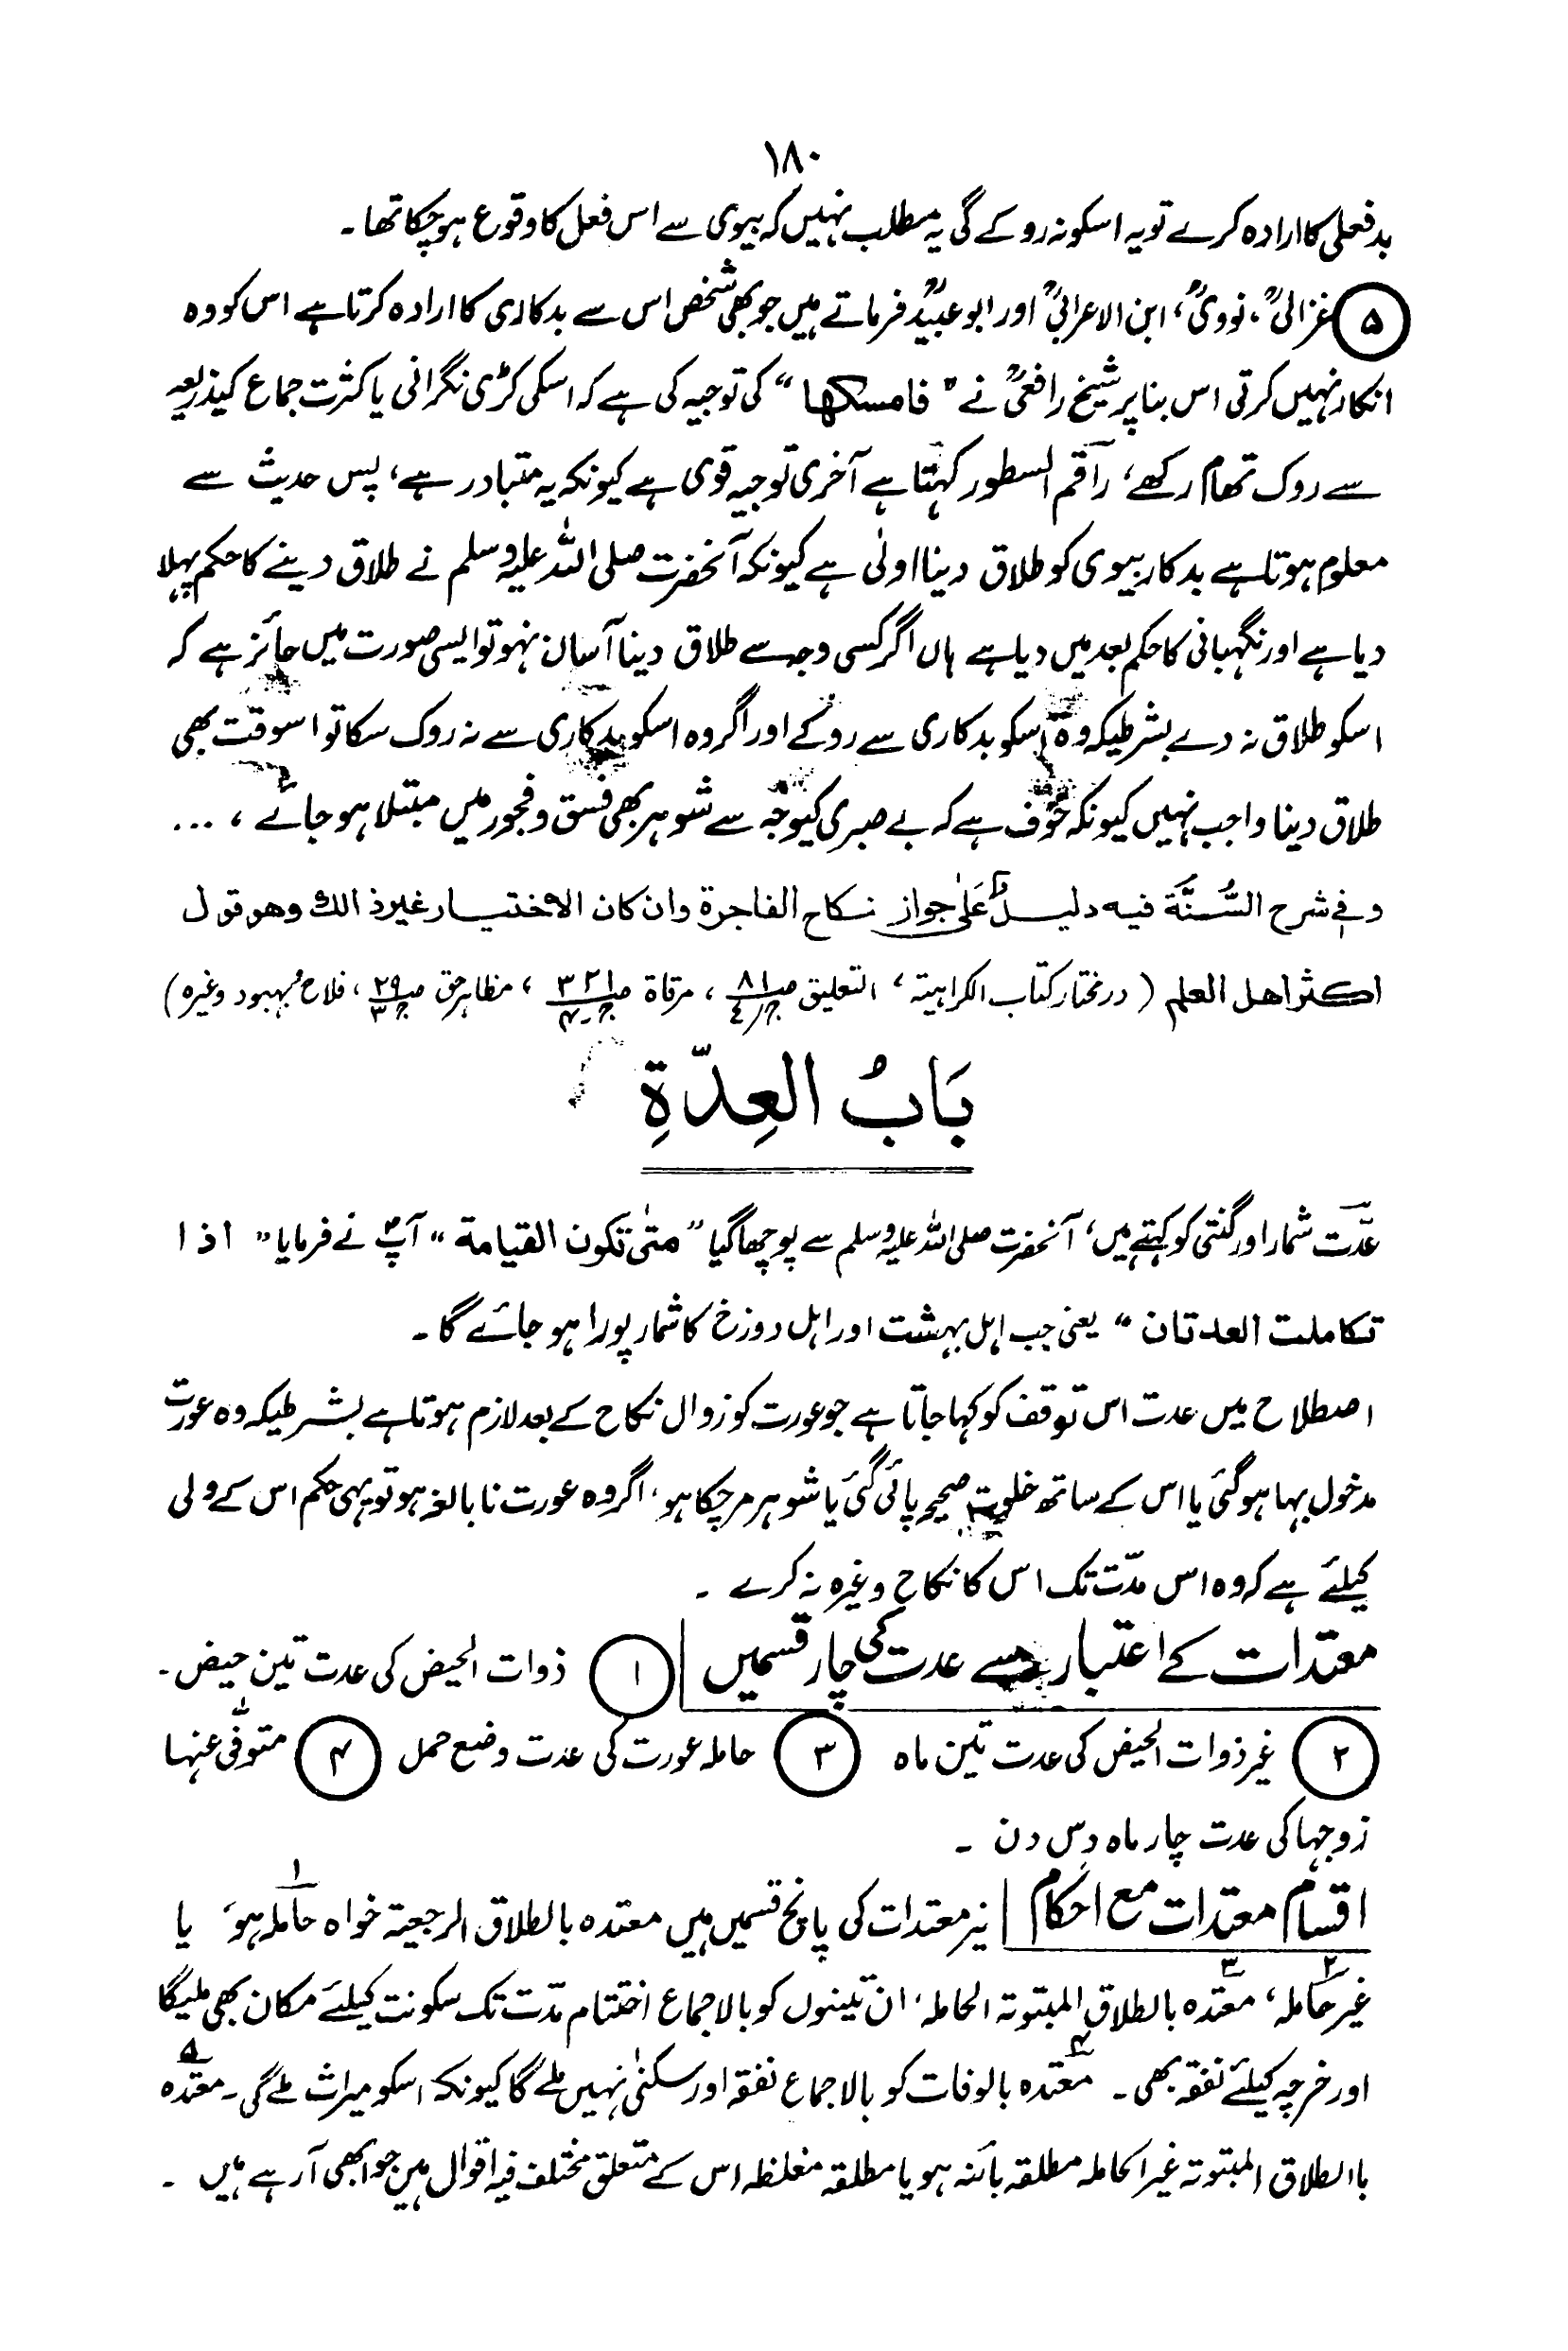 ۱۸۰
بدفعلی کا ارادہ کرے تو یہ اسکو نہ روکے گی یہ مطلب نہیں کہ بیوی سے اس فعل کا وقوع ہو چکا تھا ۔
۵ غزالیؒ، نوویؒ، ابن الاعرابیؒ اور ابو عبیدؒ فرماتے ہیں جو بھی شخص اس سے بدکاری کا ارادہ کرتا ہے اس کو وہ
انکار نہیں کرتی اس بنا پر شیخ رافعیؒ نے " فامسکھا " کی توجیہ کی ہے کہ اسکی کڑی نگرانی یا کثرت جماع کیذریعہ
سے روک تھام رکھے، راقم السطور کہتا ہے آخری توجیہ قوی ہے کیونکہ یہ متبادر ہے، پس حدیث سے
معلوم ہوتا ہے بدکار بیوی کو طلاق دینا اولیٰ ہے کیونکہ آنحضرت صلی اللہ علیہ وسلم نے طلاق دینے کا حکم پہلا
دیا ہے اور نگہبانی کا حکم بعد میں دیا ہے ہاں اگر کسی وجہ سے طلاق دینا آسان نہو تو ایسی صورت میں جائز ہے کہ
اسکو طلاق نہ دے بشرطیکہ وہ اسکو بدکاری سے روکے اور اگر وہ اسکو بدکاری سے نہ روک سکا تو اسوقت بھی
طلاق دینا واجب نہیں کیونکہ خوف ہے کہ بے صبری کیوجہ سے شوہر بھی فسق و فجور میں مبتلا ہو جائے ، ...
وفی شرح السُّنَّة فیہ دلیلٌ عَلٰی جواز نکاح الفاجرة وان کان الاختیار غیر ذالك وھو قول
اکثر اھل العلم ( درمختار کتاب الکراہیتہ ، التعلیق ص۸۱ ج٤ ، مرقاة ص۳۲۱ ج۳ ، مظاہر حق ص۲۹ ج۳ ، فلاح و بہبود وغیرہ )
بَابُ العِدّةِ
عدّت شمار اور گنتی کو کہتے ہیں، آنحضرت صلی اللہ علیہ وسلم سے پوچھا گیا " متیٰ تکون القیامة " آپؐ نے فرمایا " اذا
تکاملت العدتان " یعنی جب اہل بہشت اور اہل دوزخ کا شمار پورا ہو جائے گا ۔
اصطلاح میں عدت اس توقف کو کہا جاتا ہے جو عورت کو زوال نکاح کے بعد لازم ہوتا ہے بشرطیکہ وہ عورت
مدخول بہا ہو گئی یا اس کے ساتھ خلوت صحیحہ پائی گئی یا شوہر مر چکا ہو، اگر وہ عورت نابالغہ ہو تو یہی حکم اس کے ولی
کیلئے ہے کہ وہ اس مدّت تک اس کا نکاح وغیرہ نہ کرے ۔
معتدات کے اعتبار سے عدت کی چار قسمیں ۱ ذوات الحیض کی عدت تین حیض ۔
۲ غیر ذوات الحیض کی عدت تین ماہ ۳ حاملہ عورت کی عدت وضع حمل ۴ متوفّٰی عنہا
زوجہا کی عدت چار ماہ دس دن ۔
اقسام معتدات مع احکام نیز معتدات کی پانچ قسمیں ہیں معتدہ بالطلاق الرجعیتہ خواہ حاملہ۱ ہو، یا
غیر حاملہ۲، معتدہ۳ بالطلاق المبتوتہ الحاملہ، ان تینوں کو بالاجماع اختتام مدّت تک سکونت کیلئے مکان بھی ملیگا
اور خرچہ کیلئے نفقہ بھی ۔ معتدہ۴ بالوفات کو بالاجماع نفقہ اور سکنیٰ نہیں ملے گا کیونکہ اسکو میراث ملے گی ۔ معتدہ۵
باالطلاق المبتوتہ غیر الحاملہ مطلقہ بائنہ ہو یا مطلقہ مغلظہ اس کے متعلق مختلف فیہ اقوال ہیں جو ابھی آرہے ہیں ۔